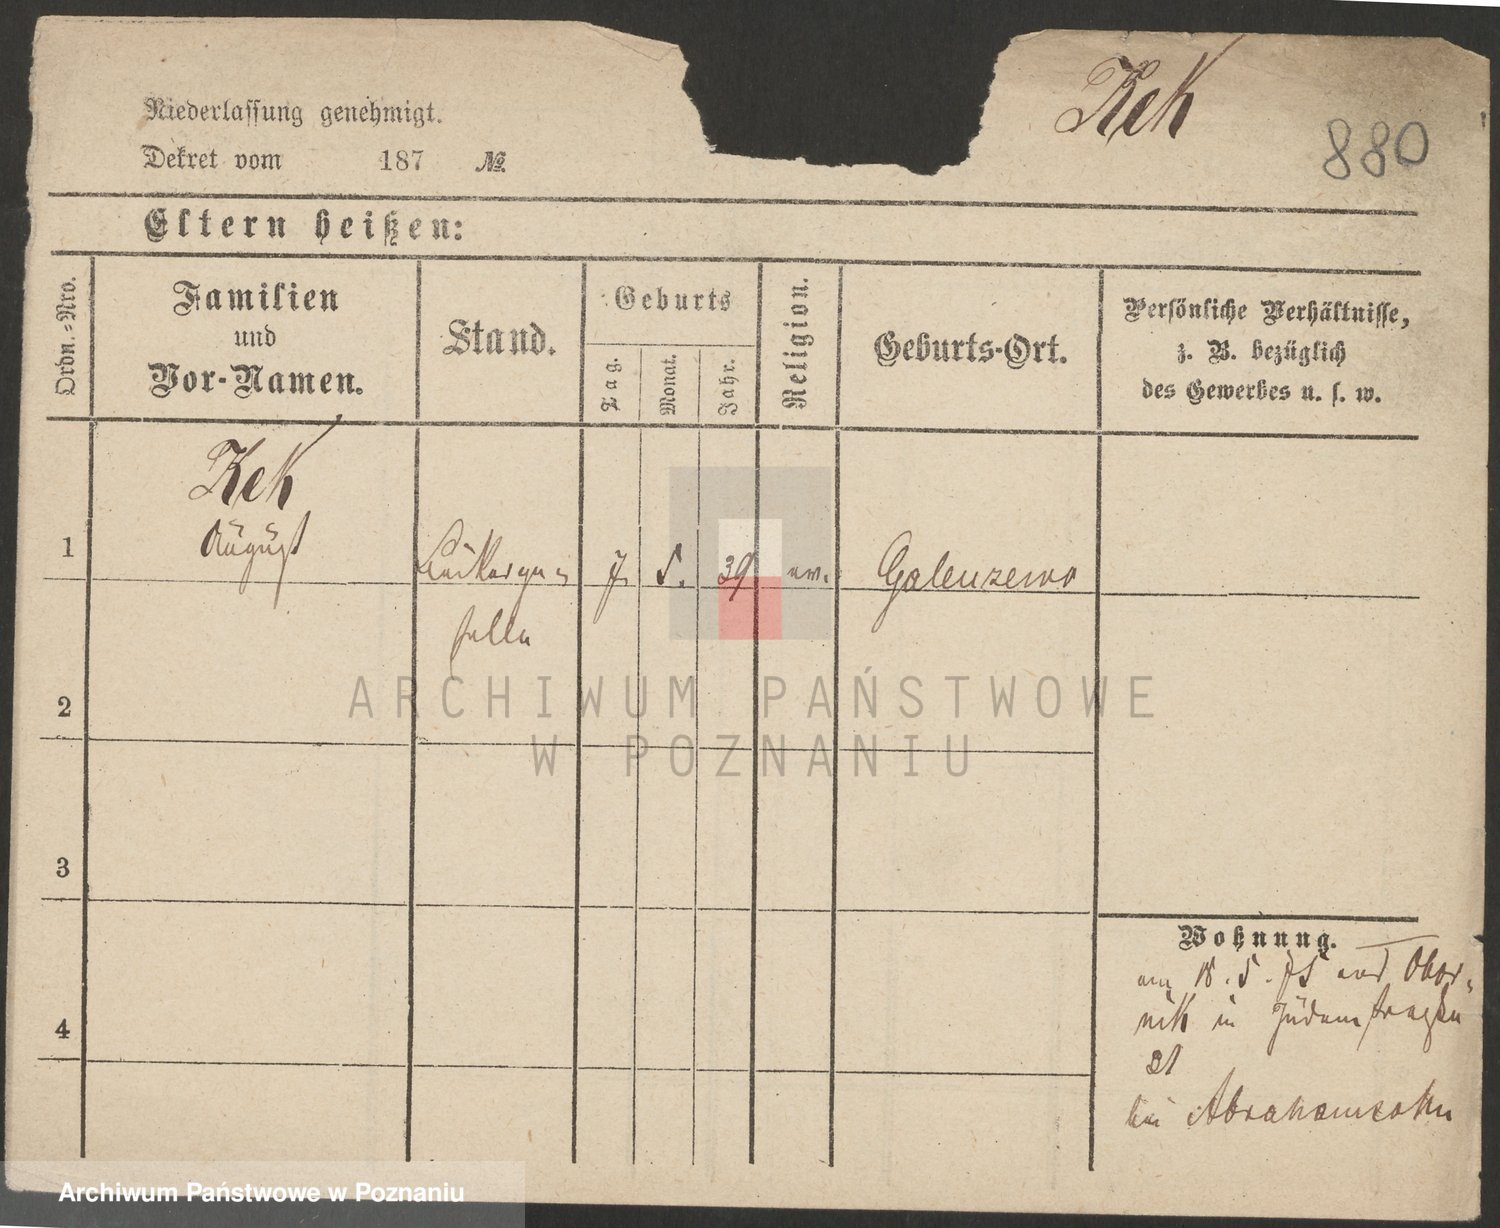 Kek
880
Niederlassung genehmigt.
Dekret vom 187 №
Eltern heißen:
Ordn.-Nro.
Familien
und
Vor-Namen.
Stand.
Geburts
Tag.
Monat.
Jahr.
Religion.
Geburts-Ort.
Persönliche Verhältnisse,
z. B. bezüglich
des Gewerbes u. s. w.
Kek
1 August 7. 5. 39 ev.
selle
2
3
4
Wohnung.
am 18. 5. 75 aus Obor-
nik in Judenstraße
31
bei Abrahamsohn
ARCHIWUM PAŃSTWOWE
W POZNANIU
Archiwum Państwowe w Poznaniu